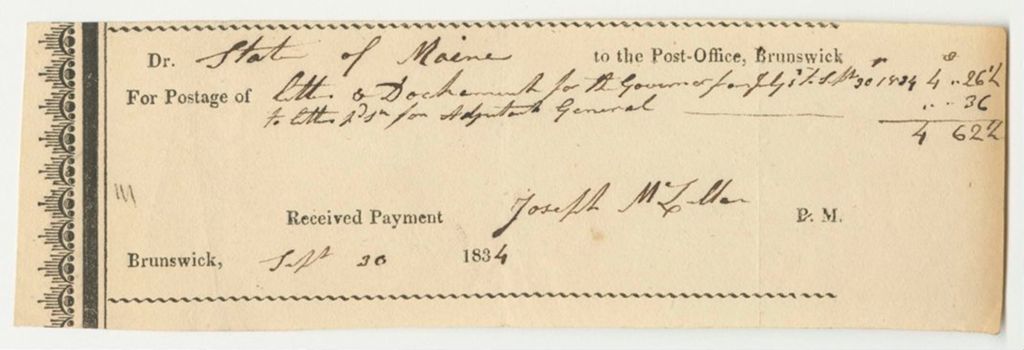 Dr. State of Maine to the Post-Office, Brunswick
For Postage of Letts. & Dockement for the Governor from July 1st to Sept 30th 1834 4 .. 26½
to letts for Adjutant General .. .. 36
4 62½
Received Payment Joseph McLellan P. M.
Brunswick, Sept 30 1834